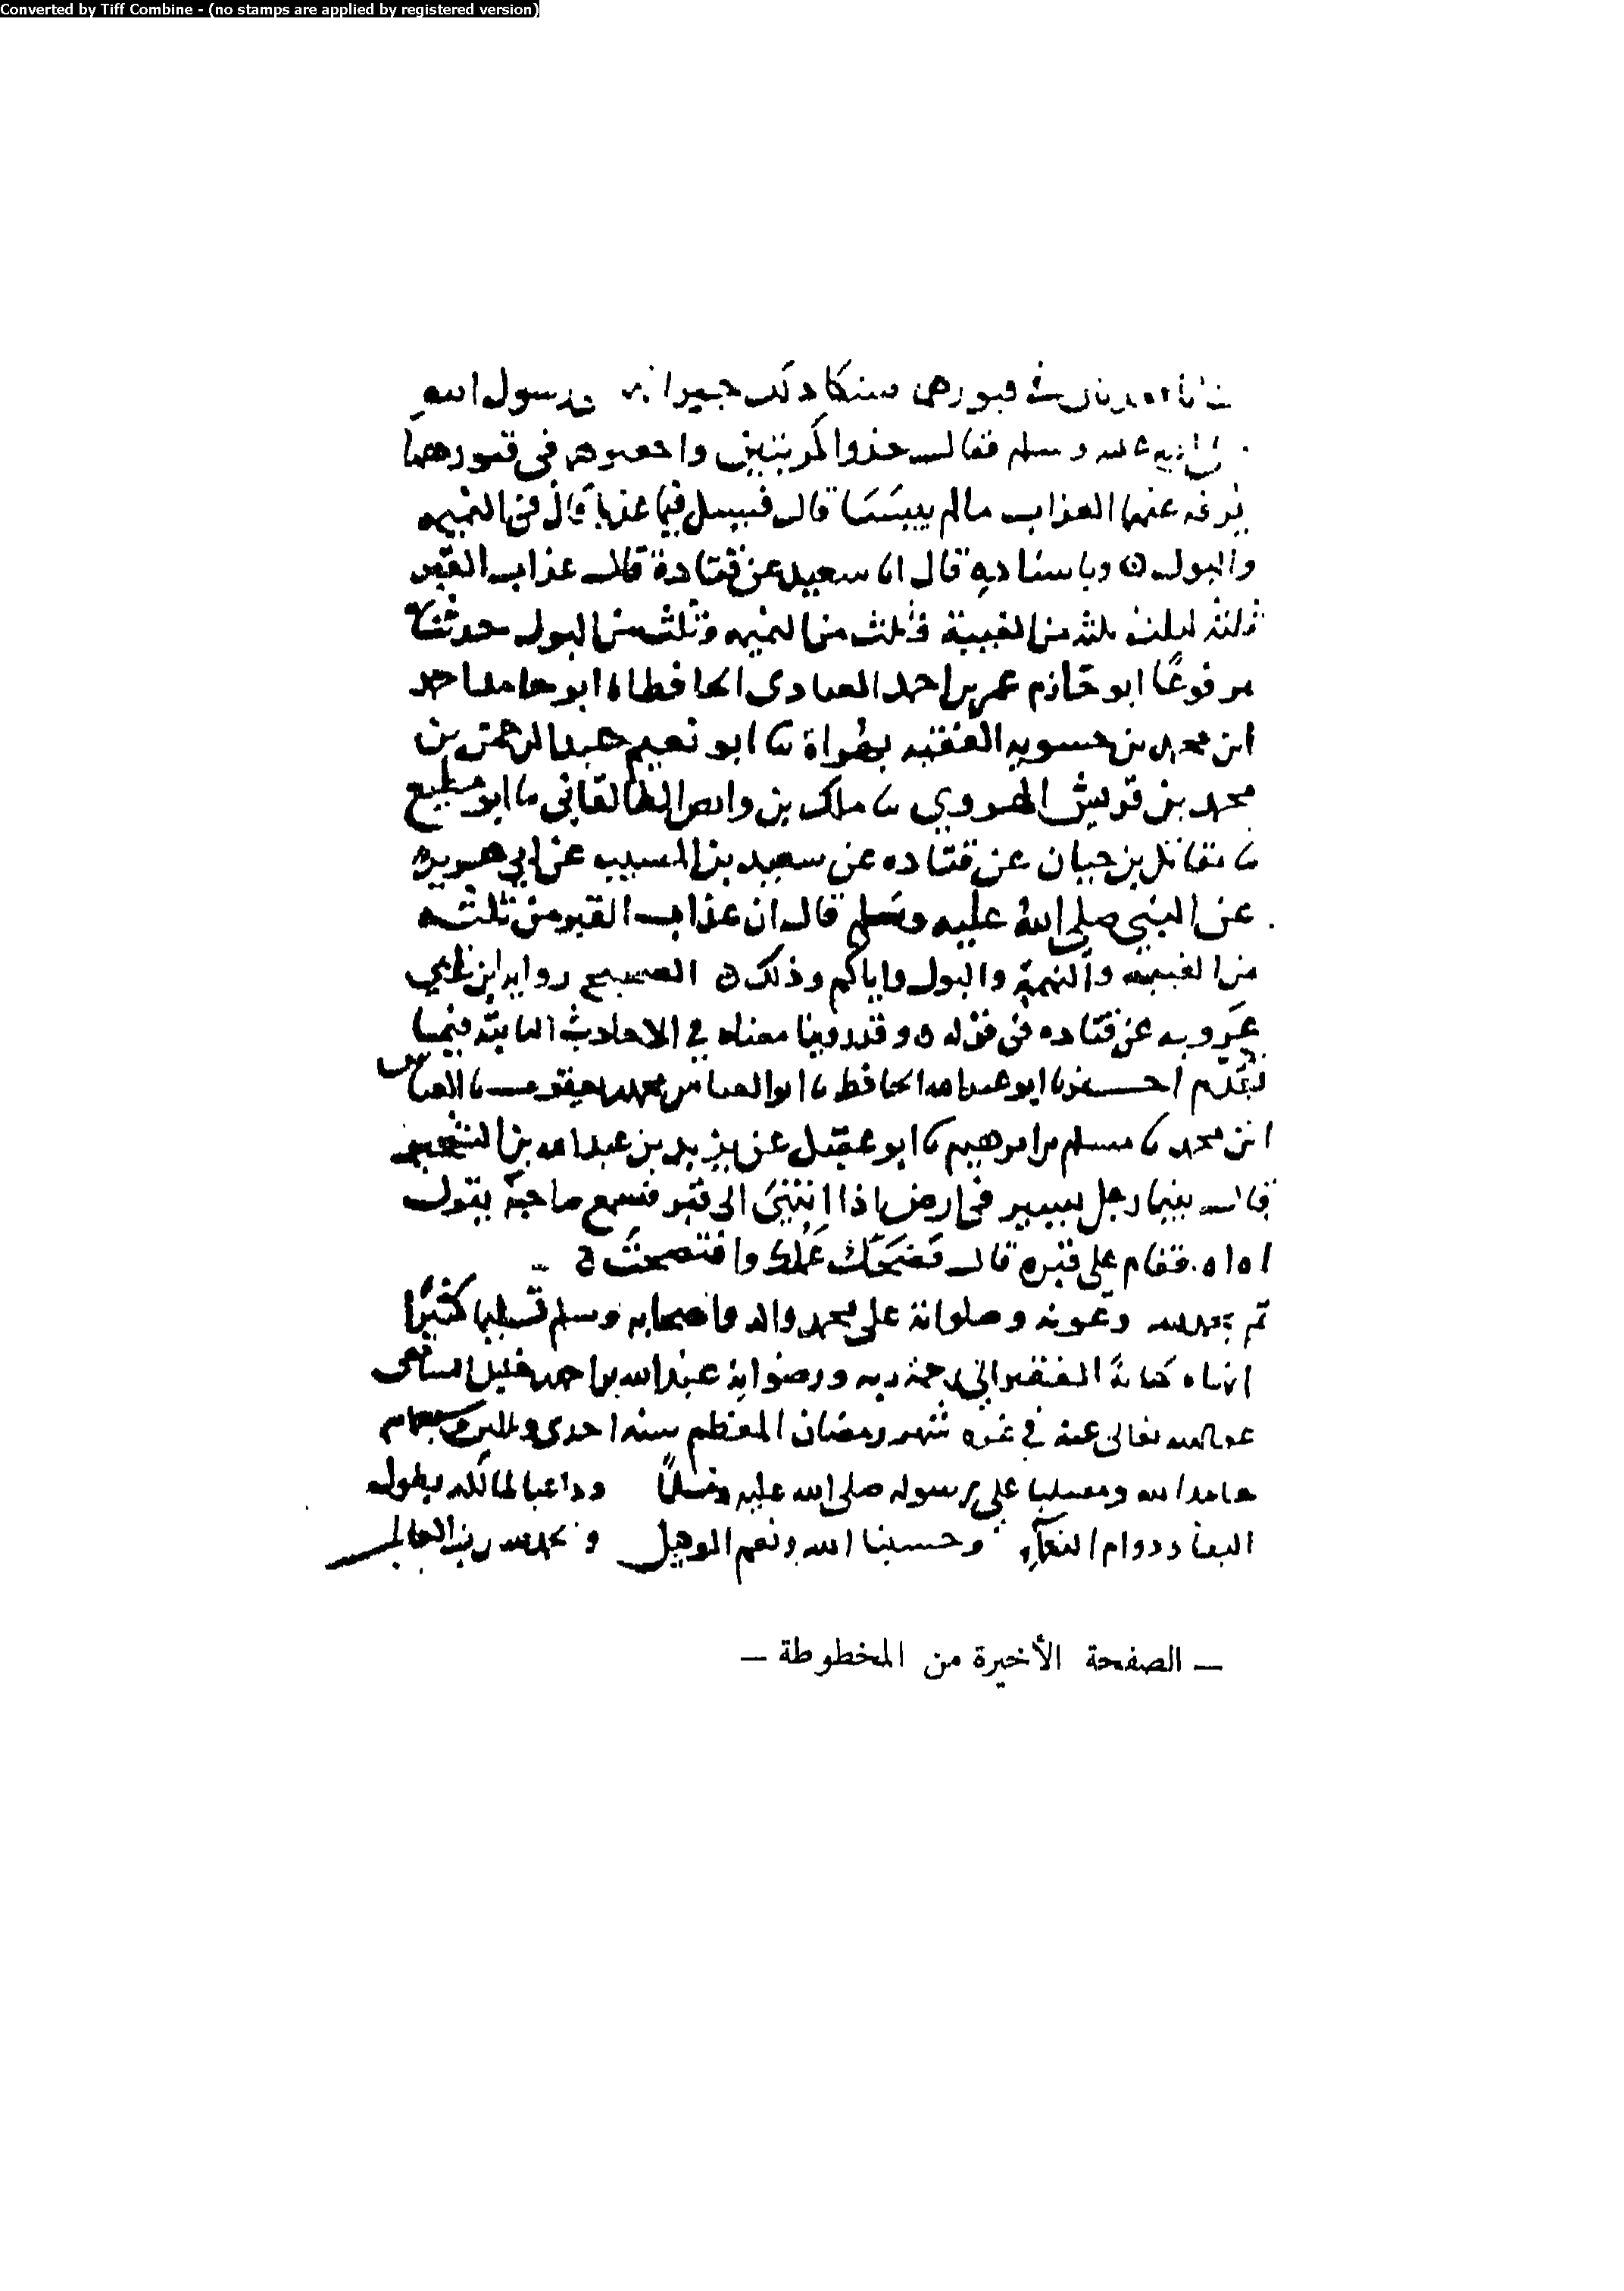 Converted by Tiff Combine - (no stamps are applied by registered version)
في قبورهن فشكا ذلك جيرانهم رسول الله
عليه وسلم فقال خذوا كربتين واجعلوهما في قبورهما
يرفه عنهما العذاب ما لم ييبسا قال فسئل فيما عذبا قال في النميمه
والبول وباسناده قال انا سعيد عن قتادة قال عذاب القبر
ثلثة اثلاث ثلث من الغيبة وثلث من النميمه وثلث من البول حدثناه
مرفوعًا ابو حازم عمر بن احمد العبادى الحافظ انا ابو حامد احمد
ابن محمد بن حسويه الفقيه بهراة نا ابو نعيم عبد الرحمن بن
محمد بن قريش الهروي نا ملك بن وابص الطالقاني نا ابو مطيع
نا مقاتل بن حيان عن قتاده عن سعيد بن المسيب عن ابي هريره
عن النبي صلى الله عليه وسلم قال ان عذاب القبر من ثلثه
من الغيبه والنميمة والبول واياكم وذلك الصحيح رواية ابن ابي
عروبه عن قتاده من قوله وقد روينا معناه في الاحاديث الثابتة فيما
تقدم اخبرنا ابو عبد الله الحافظ نا ابو العباس محمد بن يعقوب نا العباس
ابن محمد نا مسلم بن ابرهيم نا ابو عقيل عن يزيد بن عبد الله بن الشخير
قال بينما رجل يسير في ارض اذا انتهى الى قبر فسمع صاحبه يقول
اه اه فقام على قبره قال فضحك عملك وافتضحت
تم بحمد الله وعونه وصلواته على محمد واله واصحابه وسلم تسليما كثيرًا
انهاه كتابةً الفقير الى رحمة ربه ورضوانه عبد الله بن احمد خليل الشافعى
عفا الله تعالى عنه في غره شهر رمضان المعظم سنه احدى
حامدا لله ومصليا على رسوله صلى الله عليه ومسلمًا وداعيا لمالكه بطول
البقا ودوام النعماء وحسبنا الله ونعم الوكيل والحمد لله رب العالمين
– الصفحة الأخيرة من المخطوطة –